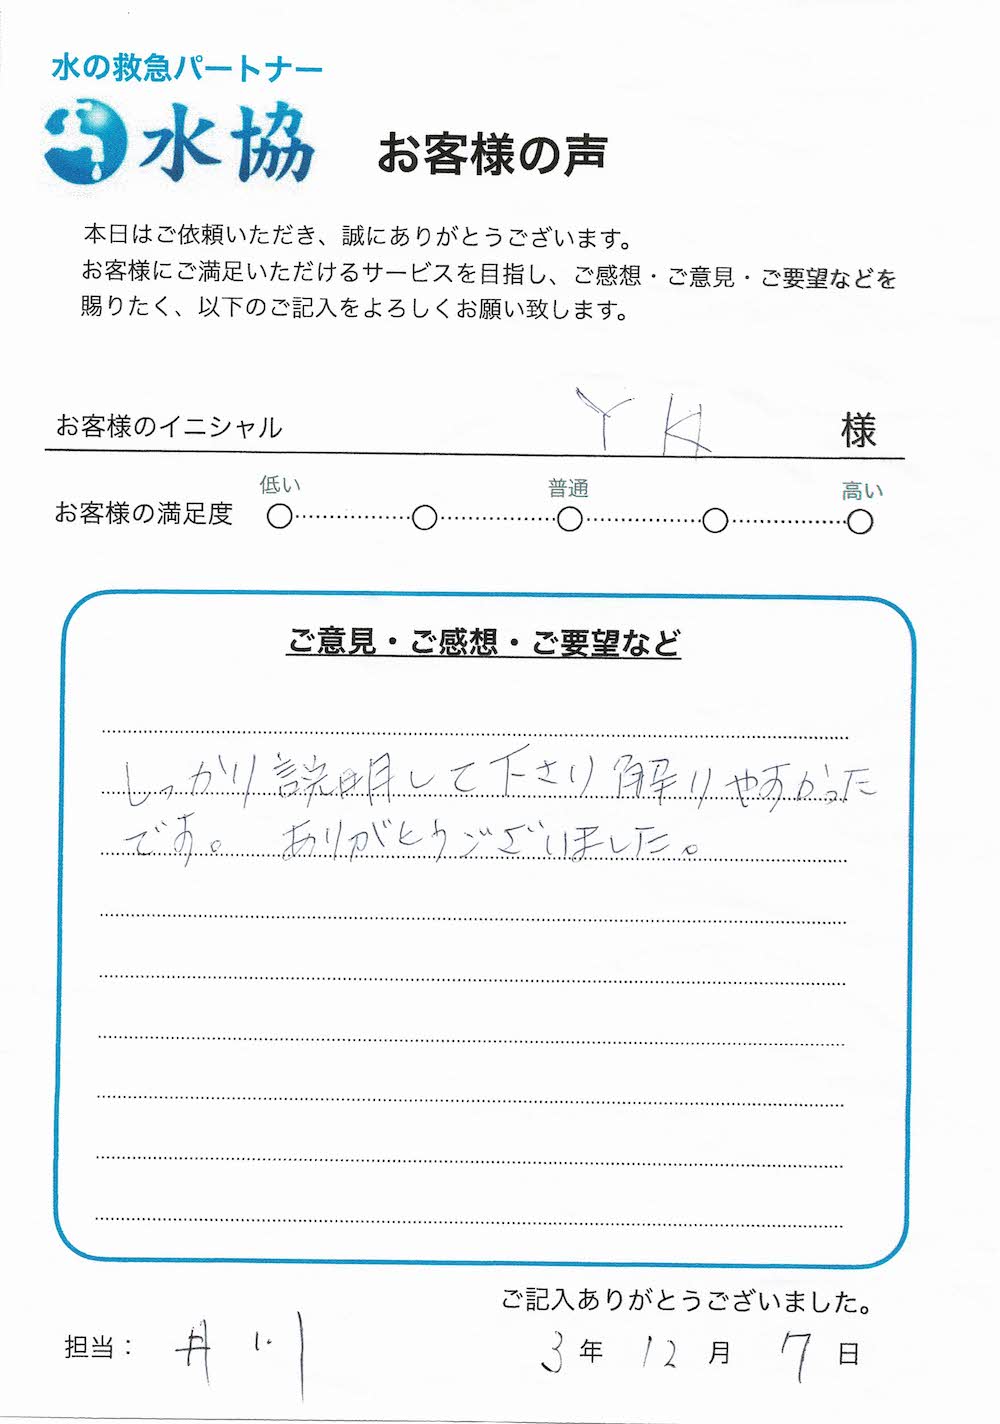 水の救急パートナー
水協
お客様の声
本日はご依頼いただき、誠にありがとうございます。
お客様にご満足いただけるサービスを目指し、ご感想・ご意見・ご要望などを
賜りたく、以下のご記入をよろしくお願い致します。
お客様のイニシャル YK 様
低い 普通 高い
お客様の満足度
ご意見・ご感想・ご要望など
しっかり説明して下さり解りやすかった
です。 ありがとうございました。
ご記入ありがとうございました。
担当： 井川 3年 12月 7日